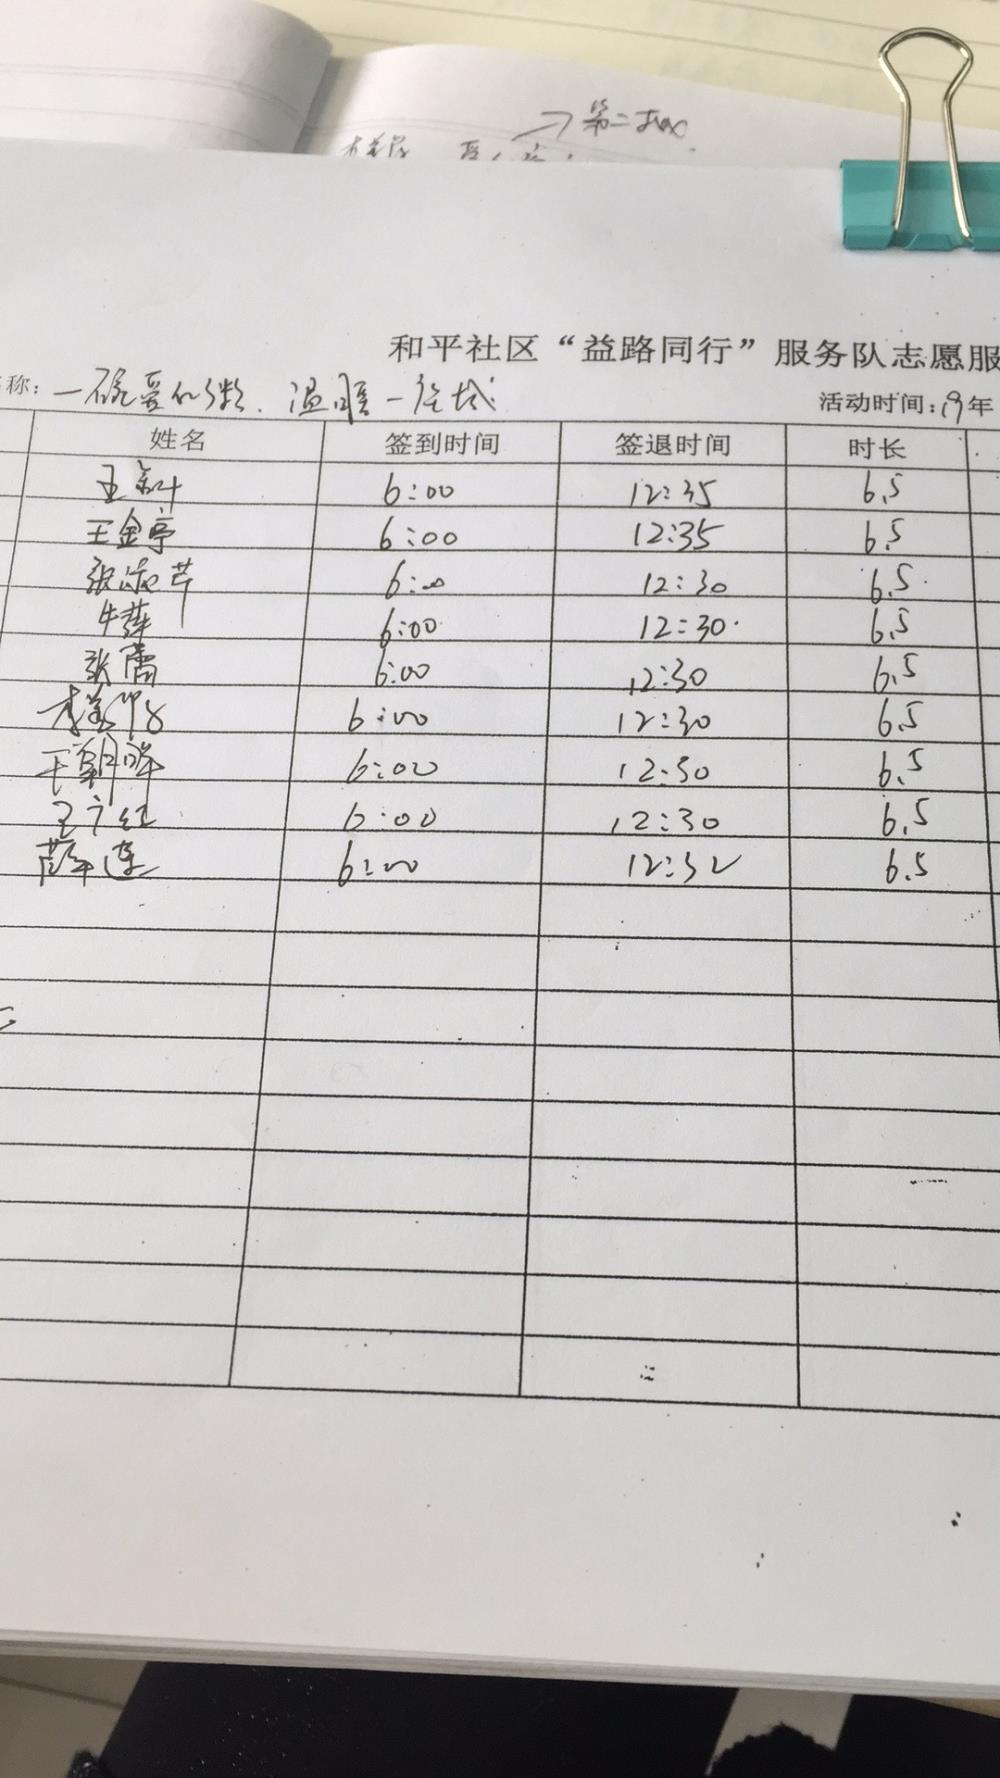 第二
和平社区“益路同行”服务队志愿服
称：一碗爱的粥，温暖一座城
活动时间：19年
姓名 签到时间 签退时间 时长
王 6:00 12:35 6.5
王金亭 6:00 12:35 6.5
张淑芹 6:00 12:30 6.5
牛萍 6:00 12:30 6.5
张蕾 6:00 12:30 6.5
6:00 12:30 6.5
王朝晖 6:00 12:30 6.5
王广红 6:00 12:30 6.5
薛莲 6:00 12:32 6.5